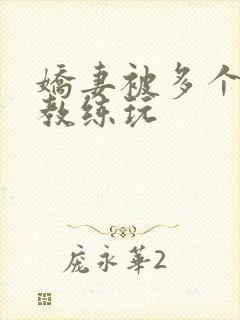 嬌妻被多个
教练玩
庞永華2